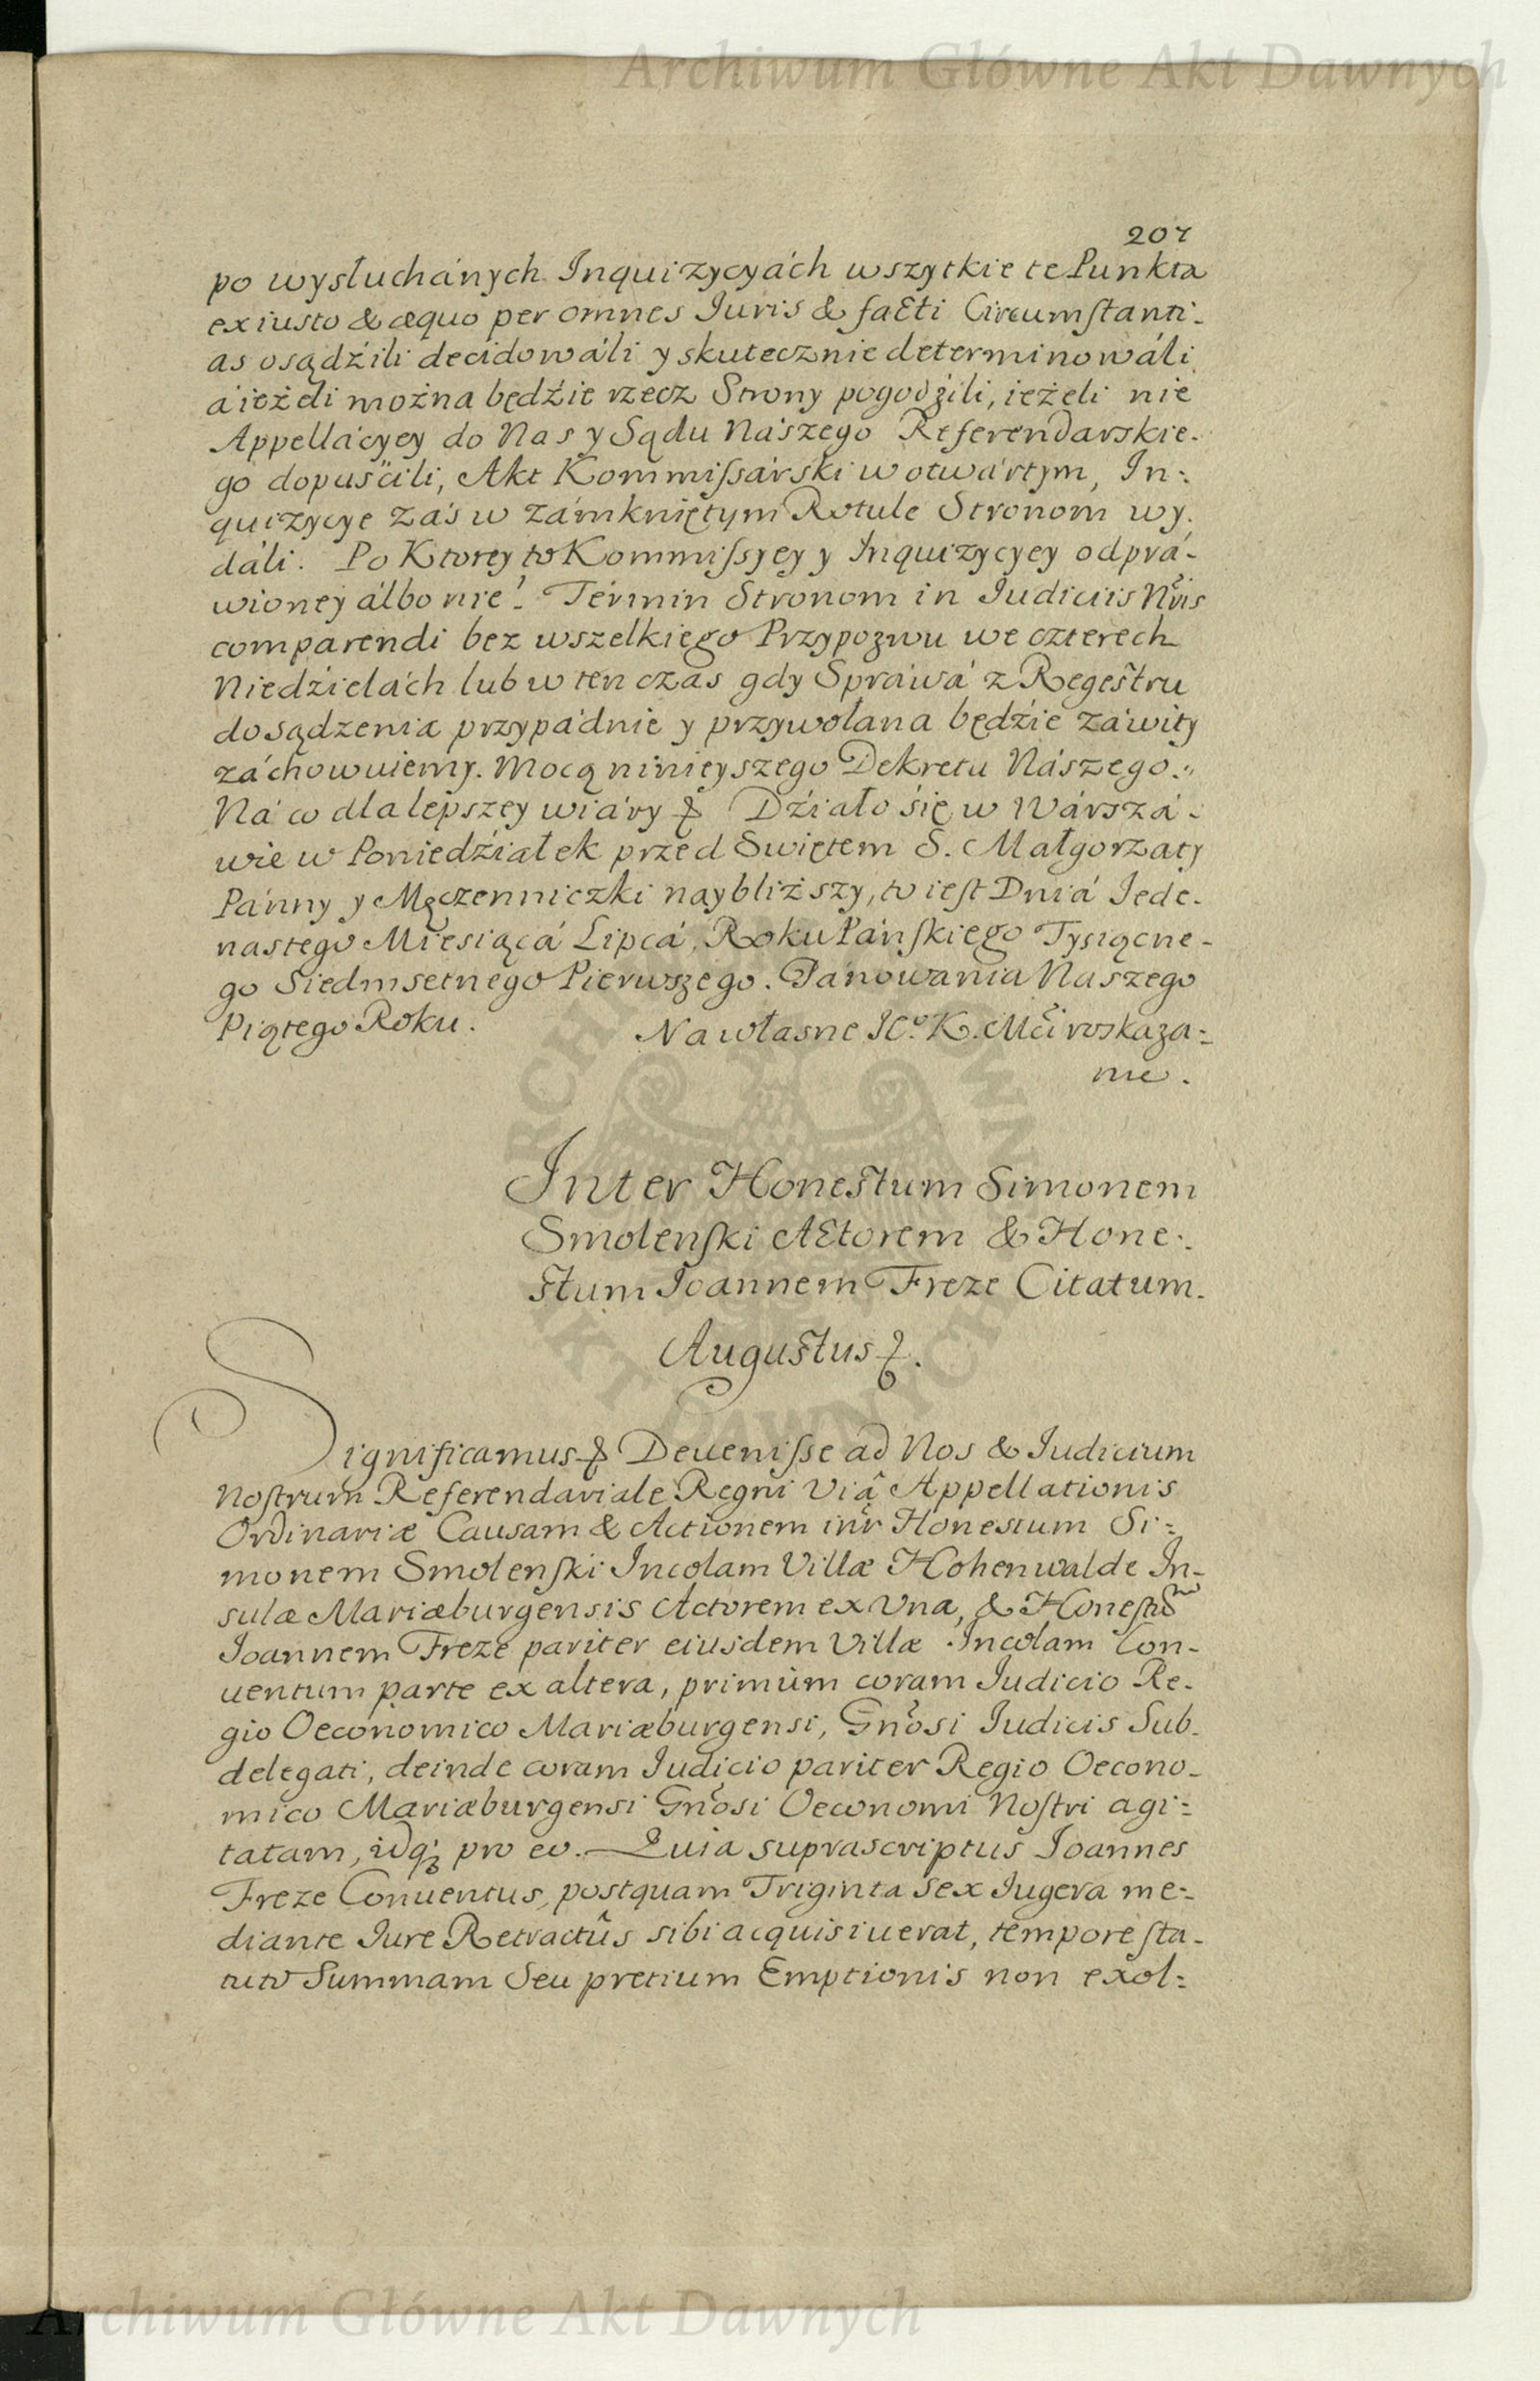 Archiwum Główne Akt Dawnych
207
po wysłuchánych Inquizycyách wszytkie te Punkta
ex iusto & æquo per omnes Iuris & facti Circumſtanti-
as osądźili decidowáli y skutecznie determinowáli
á ieżeli można będźie rzecz Strony pogodźili, ieżeli nie
Appellácyey do Nas y Sądu Nászego Referendarskie-
go dopuśćili, Akt Kommiſsárski w otwártym, In-
quizycye záś w zámkniętym Rotule Stronom wy-
dáli. Po Ktorey to Kommiſsyey y Inquizycyey odprá-
wioney álbo nie. Términ Stronom in Iudiciis Nr̃is
comparendi bez wszelkiego Przypozwu we czterech
Niedźielách lub w ten czas gdy Spráwá z Regestru
do sądzenia przypádnie y przywołana będźie záwity
záchowuiemy. Mocą ninieyszego Dekretu Nászego.
Ná co dla lepszey wiáry &. Dźiało śię w Wárszá-
wie w Poniedźiałek przed Swiętem S. Małgorzaty
Pánny y Męczenniczki naybliższy, to ieſt Dniá Iede-
nastego Miesiącá Lipcá, Roku Páńſkiego Tysiącne-
go Siedmsetnego Pierwszego. Panowania Naszego
Piątego Roku.
Na własne IC.º K. Mći roskaza-
nie.
Inter Honestum Simonem
Smolenſki Actorem & Hone-
stum Ioannem Freze Citatum.
Augustus &.
Significamus & Deueniſse ad Nos & Iudicium
Noſtrum Referendariale Regni Viâ Appellationis
Ordinariæ Causam & Actionem int̃r Honestum Si-
monem Smolenſki Incolam Villæ Hohenwalde In-
sulæ Mariæburgensis Actorem ex Vna, & Honeſtũ
Ioannem Freze pariter eiusdem Villæ Incolam Con-
uentum parte ex altera, primùm coram Iudicio Re-
gio Oeconomico Mariæburgensi, Gñosi Iudicis Sub-
delegati, deinde coram Iudicio pariter Regio Oecono-
mico Mariæburgensi Gñosi Oeconomi Noſtri agi-
tatam, idq; pro eo. Quia suprascriptus Ioannes
Freze Conuentus, postquam Triginta Sex Iugera me-
diante Iure Retractûs sibi acquisiuerat, tempore ſta-
tuto Summam Seu pretium Emptionis non exol-
Archiwum Główne Akt Dawnych